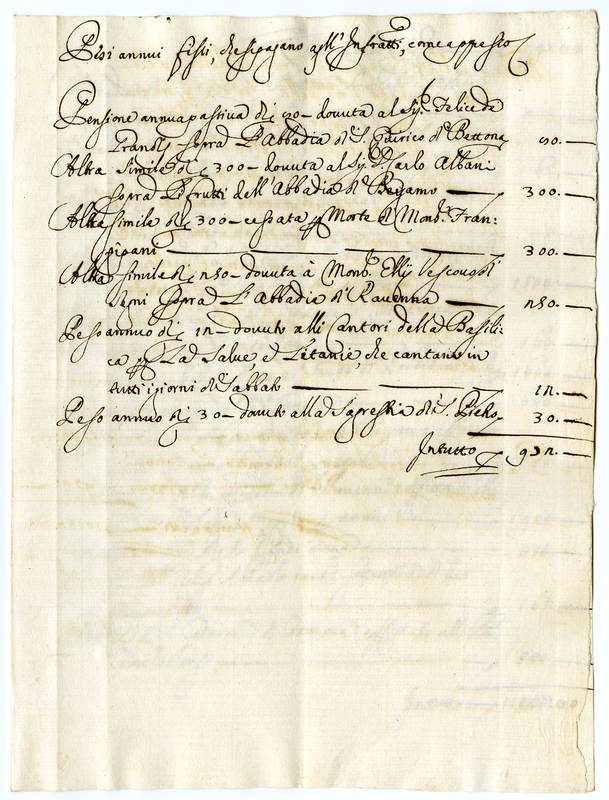 Pesi annui fissi, che si pagano agl' Infratti, come appresso
Pensione annua passiva di ∇ 90 – dovuta al Sig.r Felice de
Grandis sopra l'Abbadia di S. Quirico di Bettona 90. –
Altra simile di ∇ 300 – dovuta al Sig.r D. Carlo Albani
sopra li frutti dell'Abbadia di Bergamo — 300. –
Altra simile di ∇ 300 – cessata p Morte di Mons.r Fran:
gipani — — — 300. –
Altra simile di ∇ 250 – dovuta à Mons.r Ellij Vescovo di
Segni sopra l'Abbadia di Ravenna — 250. –
Peso annuo di ∇ 12 – dovuto alli Cantori della Basili:
ca p La Salve, e Litanie, che cantano in
tutti i giorni di Sabbato — — — 12. –
Peso annuo di ∇ 30 – dovuto alla Sagrestia di S. Pietro 30. –
In tutto ∇ 982. –